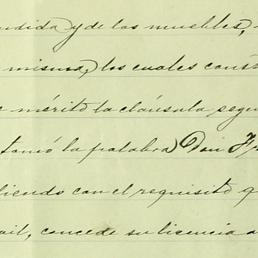 endida y de los muebles,
misma, los cuales const
mérito la cláusula segu
tomó la palabra Don F
liendo con el requisito q
concede su licencia a